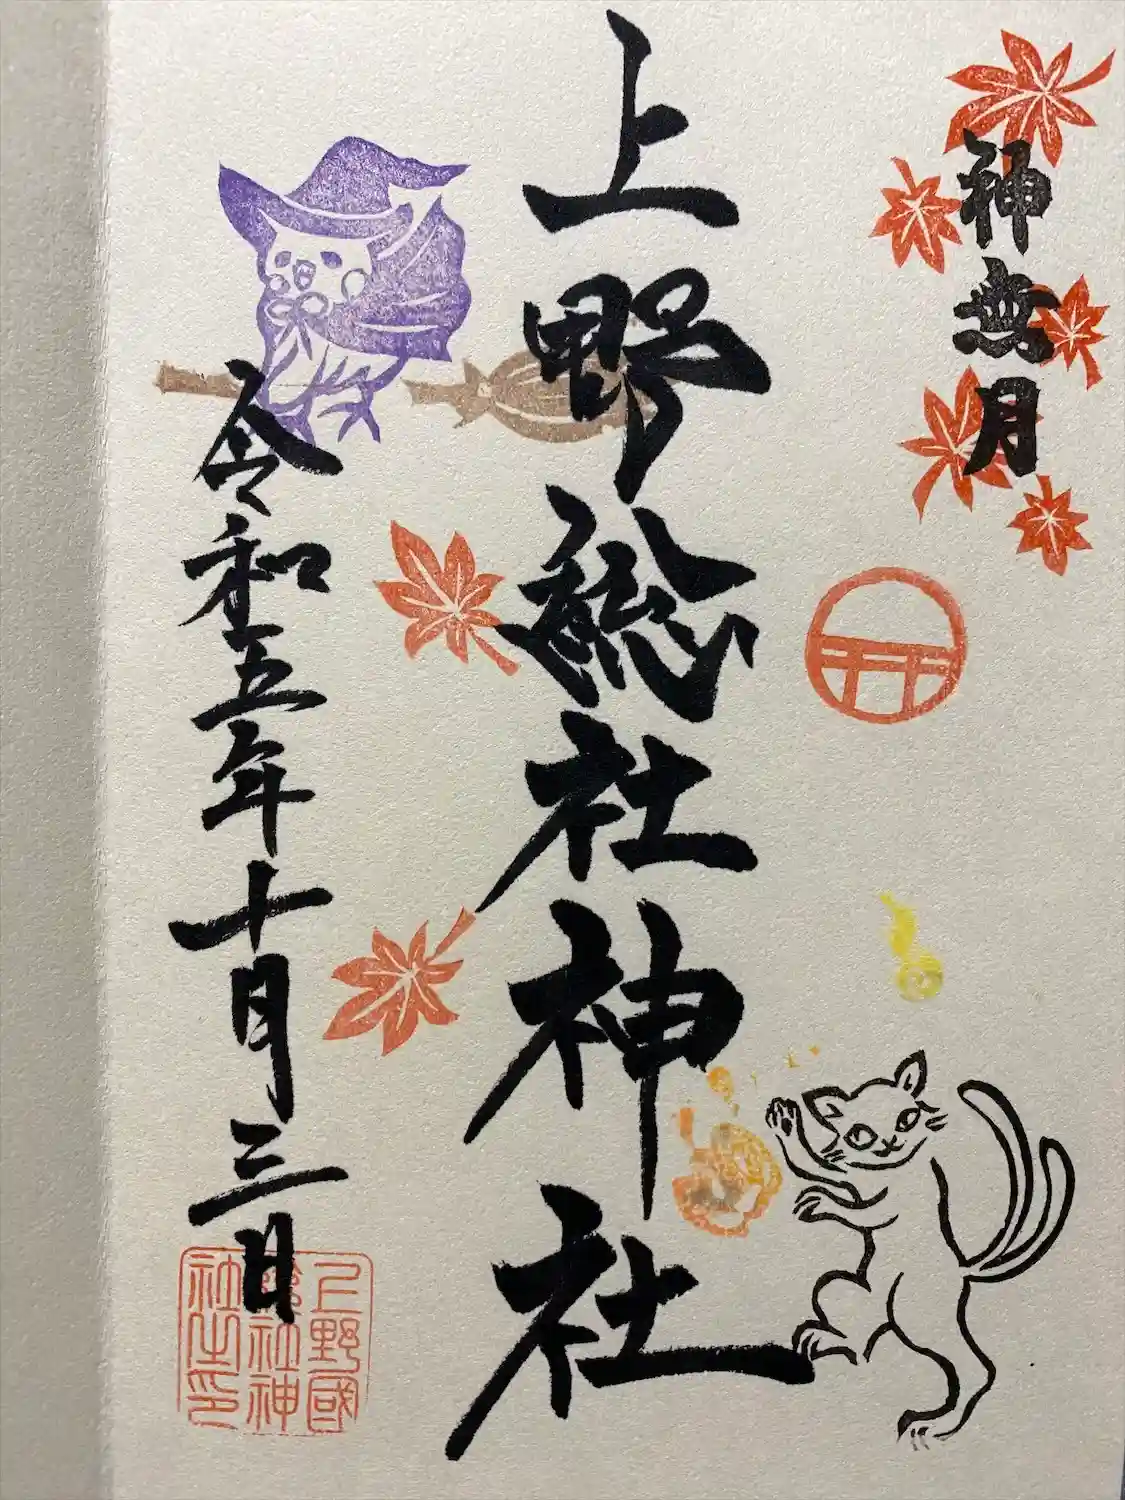 神無月
上野総社神社
令和五年十月三日
上野國
総社神
社之印